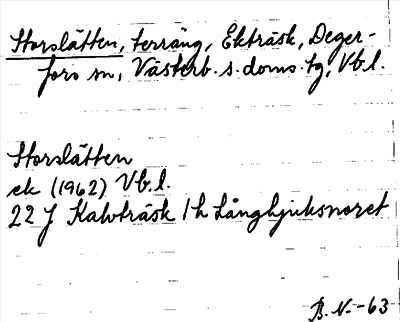 Storslätten, terräng, Ekträsk, Deger-
fors sn, Västerb. s. doms. tg, Vb.l.
Storslätten
ek (1962) Vb.l.
22 J Kalvträsk 1 h Långbjuksnoret
B. N. -63